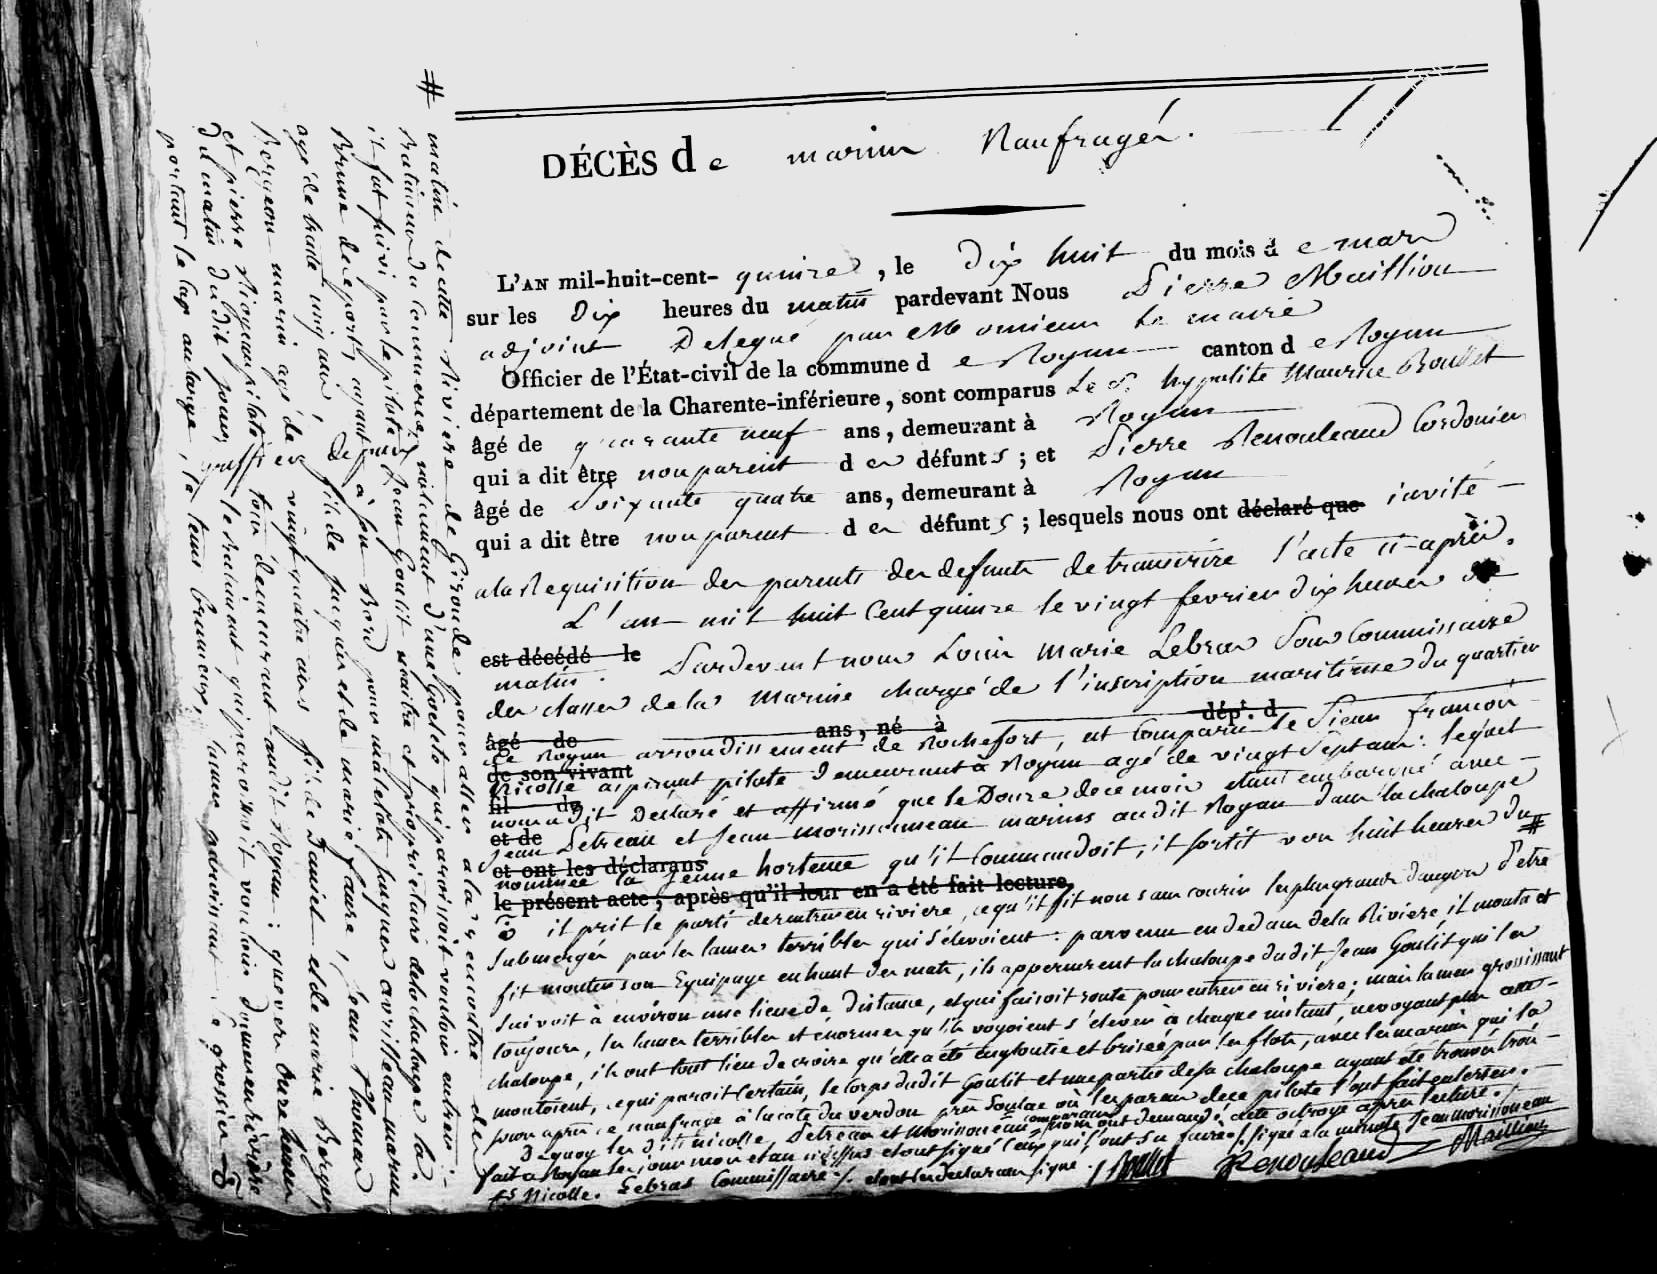 DÉCÈS de marins Naufragés.
L'AN mil-huit-cent- quinze, le dix huit du mois de mars
sur les Dix heures du matin pardevant Nous Pierre Maillion
adjoint Delegué par Monsieur le maire
Officier de l'État-civil de la commune de Royan canton de Royan
département de la Charente-inférieure, sont comparus Le Sr. hypolite Maurice Boullet
âgé de quarante neuf ans, demeurant à Royan
qui a dit être non parent des défunts; et Pierre Renouleaud Cordonier
âgé de Soixante quatre ans, demeurant à Royan
qui a dit être non parent des défunts; lesquels nous ont déclaré que invité
a la Requisition des parents des defunts de transcrire l'acte ci-après.
L'an mil huit Cent quinze le vingt fevrier dix heures du
est décédé le
matin. Pardevant nous Louis marie Lebras Sous Commissaire
des classes de la Marine chargé de l'inscription maritime du quartier
âgé de ans, né à dépt. d
de Royan arrondissement de Rochefort, est Comparu le Sieur françois
de son vivant
Nicolle aspirant pilote demeurant a Royan agé de vingt Sept ans: lequel
fil de
nous a dit Declaré et affirmé que le Douze de ce mois etant embarqué avec
et de
Jean Detreau et Jean morissonneau marins au dit Royan dans la chaloupe
et ont les déclarans
nommée la Jeune hortense qu'il Commandoit, il sortit vers huit heures du #
le présent acte, après qu'il leur en a été fait lecture.
il prit le parti de rentrer en riviere, ce qu'il fit non sans courir les plus grands dangers d'etre
Submergés par les lames terribles qui s'elevoient: parvenu en dedans de la Riviere, il monta et
fit monter son Equipage en haut des mats, ils apperçurent la chaloupe dudit Jean Goulit qui les
Suivoit à environ une lieue de distance, et qui faisoit route pour entrer en riviere; mais la mer grossissant
toujours, les lames terribles et énormes qu'ils voyoient s'élever à chaque instant, ne voyant plus cette
chaloupe, ils ont tout lieu de croire qu'elle a été engloutie et brisée par les flots, avec les marins qui la
montoient, ce qui paroit Certain, le corps dudit Goulit et une partie de sa chaloupe ayant été trouvés trois
jours après ce naufrage à la cote du verdon près Soulac où les parens de ce pilote l'ont fait enterrer.
De quoy les dits nicolle, Detreau et Morissoneau comparans nous ont demandé acte octroyé après lecture.
fait a Royan les jour mois et an ci dessus et ont signé Ceux qui l'ont su faire. signé a la minute Jean morissoneau
fs Nicolle. Lebras Commissaire. et ont les declarans signé. Boullet Renouleaud Maillion
# matin de cette Riviere de Gironde pour aller a la rencontre des
Batimens du Commerce, notament d'une Goelette qui paroissoit vouloir entrer;
il fut suivi par le pilote Jean Goulit maitre et proprietaire de la chaloupe la
Brune de ce port, ayant à son Bord pour matelots Jacques avrilleau marin
agé de trente cinq ans, fils de Jacques et de marie faure, Jean Thomas
Bergeon marin agé de vingt quatre ans fils de Daniel et de marie Berger
et pierre tous demeurant audit Royan: que vers Onze heures
du matin dudit jour, le Batiment qui paroissoit vouloir Donner en riviere
portant le Cap au large, le tems brumeux, la mer grossir